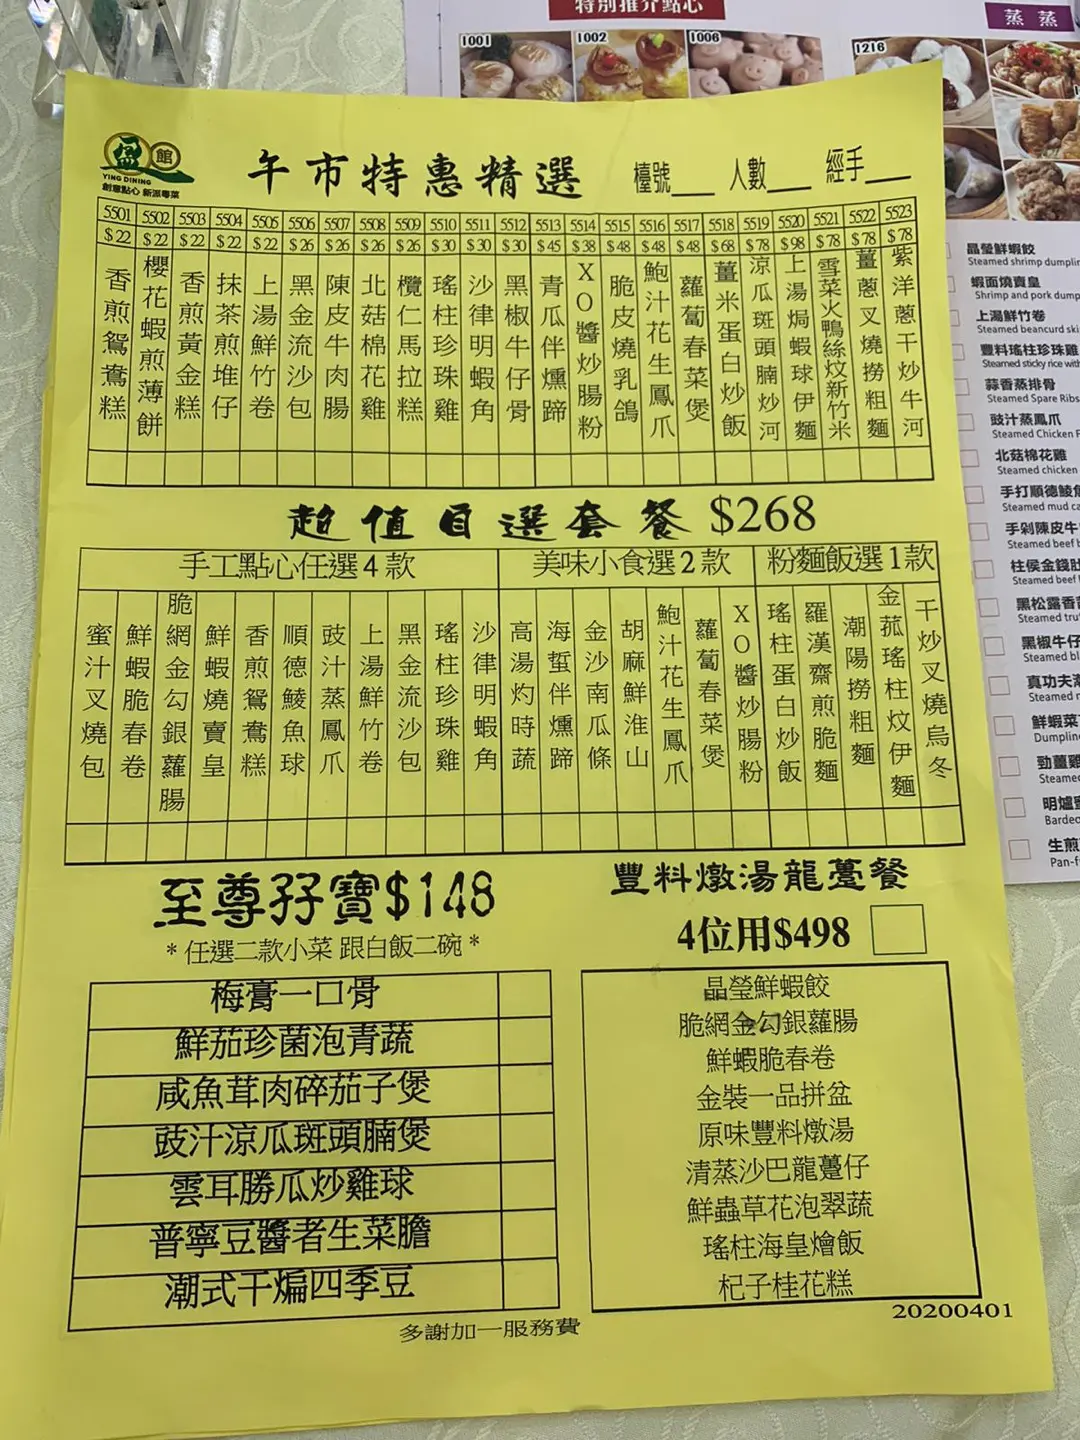 特別推介點心
蒸 蒸
1001
1002
1006
1216
盈
館
YING DINING
創意點心 新派粵菜
午市特惠精選
檯號___ 人數___ 經手___
5501 5502 5503 5504 5505 5506 5507 5508 5509 5510 5511 5512 5513 5514 5515 5516 5517 5518 5519 5520 5521 5522 5523
$22 $22 $22 $22 $22 $26 $26 $26 $26 $30 $30 $30 $45 $38 $48 $48 $48 $68 $78 $98 $78 $78 $78
香煎鴛鴦糕
櫻花蝦煎薄餅
香煎黃金糕
抹茶煎堆仔
上湯鮮竹卷
黑金流沙包
陳皮牛肉腸
北菇棉花雞
欖仁馬拉糕
瑤柱珍珠雞
沙律明蝦角
黑椒牛仔骨
青瓜伴燻蹄
XO醬炒腸粉
脆皮燒乳鴿
鮑汁花生鳳爪
蘿蔔春菜煲
薑米蛋白炒飯
涼瓜斑頭腩炒河
上湯焗蝦球伊麵
雪菜火鴨絲炆新竹米
薑蔥叉燒撈粗麵
紫洋蔥干炒牛河
超值自選套餐 $268
手工點心任選4款
美味小食選2款
粉麵飯選1款
蜜汁叉燒包
鮮蝦脆春卷
脆網金勾銀蘿腸
鮮蝦燒賣皇
香煎鴛鴦糕
順德鯪魚球
豉汁蒸鳳爪
上湯鮮竹卷
黑金流沙包
瑤柱珍珠雞
沙律明蝦角
高湯灼時蔬
海蜇伴燻蹄
金沙南瓜條
胡麻鮮淮山
鮑汁花生鳳爪
蘿蔔春菜煲
XO醬炒腸粉
瑤柱蛋白炒飯
羅漢齋煎脆麵
潮陽撈粗麵
金菰瑤柱炆伊麵
干炒叉燒烏冬
至尊孖寶$148
*任選二款小菜 跟白飯二碗*
梅膏一口骨
鮮茄珍菌泡青蔬
咸魚茸肉碎茄子煲
豉汁涼瓜斑頭腩煲
雲耳勝瓜炒雞球
普寧豆醬者生菜膽
潮式干煸四季豆
豐料燉湯龍躉餐
4位用$498
晶瑩鮮蝦餃
脆網金勾銀蘿腸
鮮蝦脆春卷
金裝一品拼盆
原味豐料燉湯
清蒸沙巴龍躉仔
鮮蟲草花泡翠蔬
瑤柱海皇燴飯
杞子桂花糕
20200401
多謝加一服務費
晶瑩鮮蝦餃
Steamed shrimp dumplin
蝦面燒賣皇
Shrimp and pork dump
上湯鮮竹卷
Steamed beancurd ski
豐料瑤柱珍珠雞
Steamed sticky rice with
蒜香蒸排骨
Steamed Spare Ribs
豉汁蒸鳳爪
Steamed Chicken F
北菇棉花雞
Steamed chicken
手打順德鯪魚
Steamed mud ca
手剁陳皮牛
Steamed beef b
柱侯金錢肚
Steamed beef
黑松露香
Steamed tru
黑椒牛仔
Steamed bl
真功夫
Steamed
鮮蝦菜
Dumplin
勁薑雞
Steame
明爐
Barbec
生煎
Pan-f